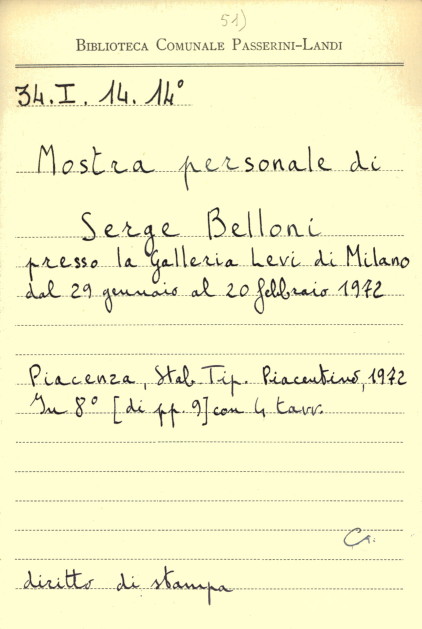 51)
BIBLIOTECA COMUNALE PASSERINI-LANDI
34.I.14.14°
Mostra personale di
Serge Belloni
presso la Galleria Levi di Milano
dal 29 gennaio al 20 febbraio 1972
Piacenza, Stab. Tip. Piacentino, 1972
In 8° [di pp. 9] con 4 tavv.
Cr.
diritto di stampa